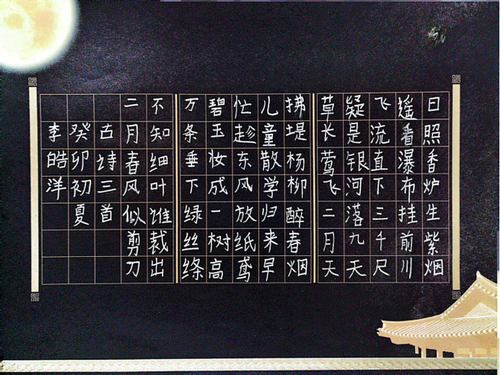 日照香炉生紫烟
遥看瀑布挂前川
飞流直下三千尺
疑是银河落九天
草长莺飞二月天
拂堤杨柳醉春烟
儿童散学归来早
忙趁东风放纸鸢
碧玉妆成一树高
万条垂下绿丝绦
不知细叶谁裁出
二月春风似剪刀
古诗三首
癸卯初夏
李皓洋